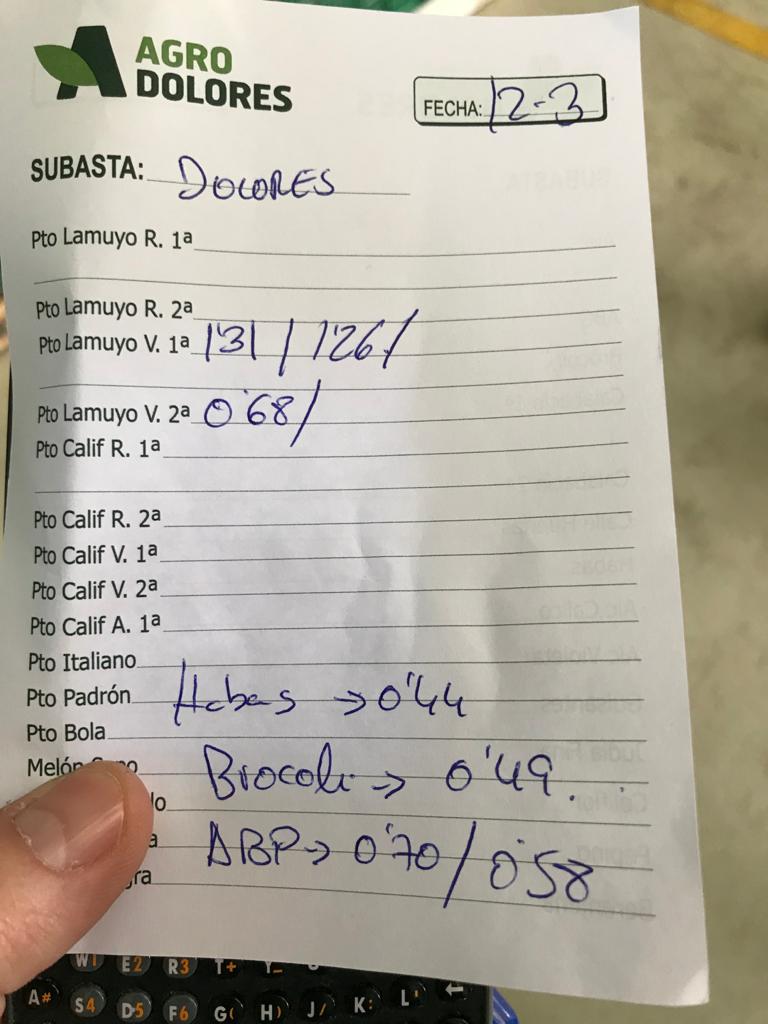 AGRO
DOLORES
FECHA: 12-3
SUBASTA: DOLORES
Pto Lamuyo R. 1ª
Pto Lamuyo R. 2ª
Pto Lamuyo V. 1ª 1'31 / 1'26 /
Pto Lamuyo V. 2ª 0'68 /
Pto Calif R. 1ª
Pto Calif R. 2ª
Pto Calif V. 1ª
Pto Calif V. 2ª
Pto Calif A. 1ª
Pto Italiano
Pto Padrón Habas → 0'44
Pto Bola
Melón Brocoli → 0'49.
ABP → 0'70 / 0'58
W! E2 R3 T+ Y_
A# S4 D5 F6 G( H) J/ K: L'